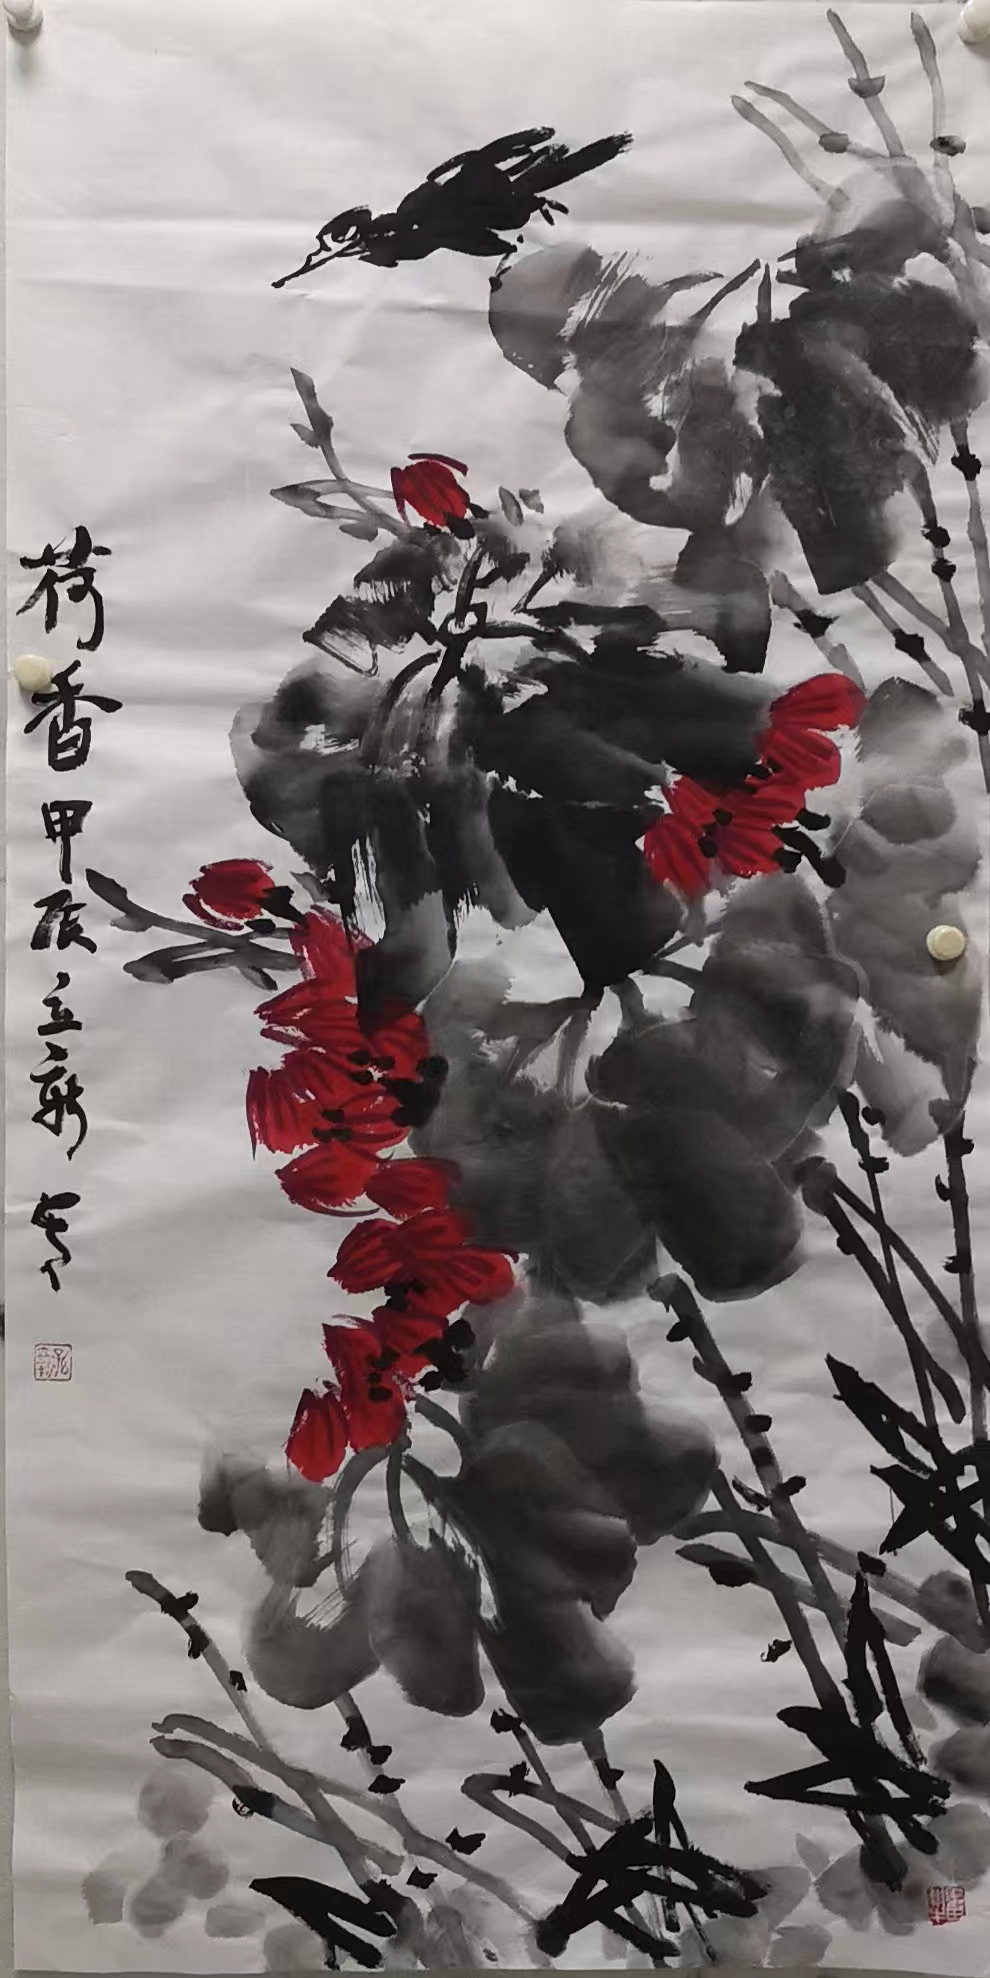 荷香甲辰立新写